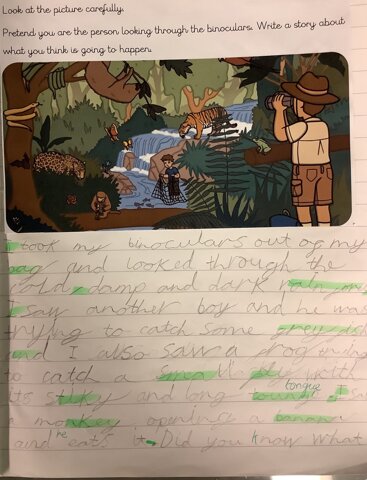 Look at the picture carefully.
Pretend you are the person looking through the binoculars. Write a story about
what you think is going to happen.
I took my binoculars out og my
bag and looked through the
cold, damp and dark
I saw another boy and he was
trying to catch some grey
and I also saw a frog
to catch a with
its stiky and long tongue I
a monkey opening a banana
and he eats it. Did you know what